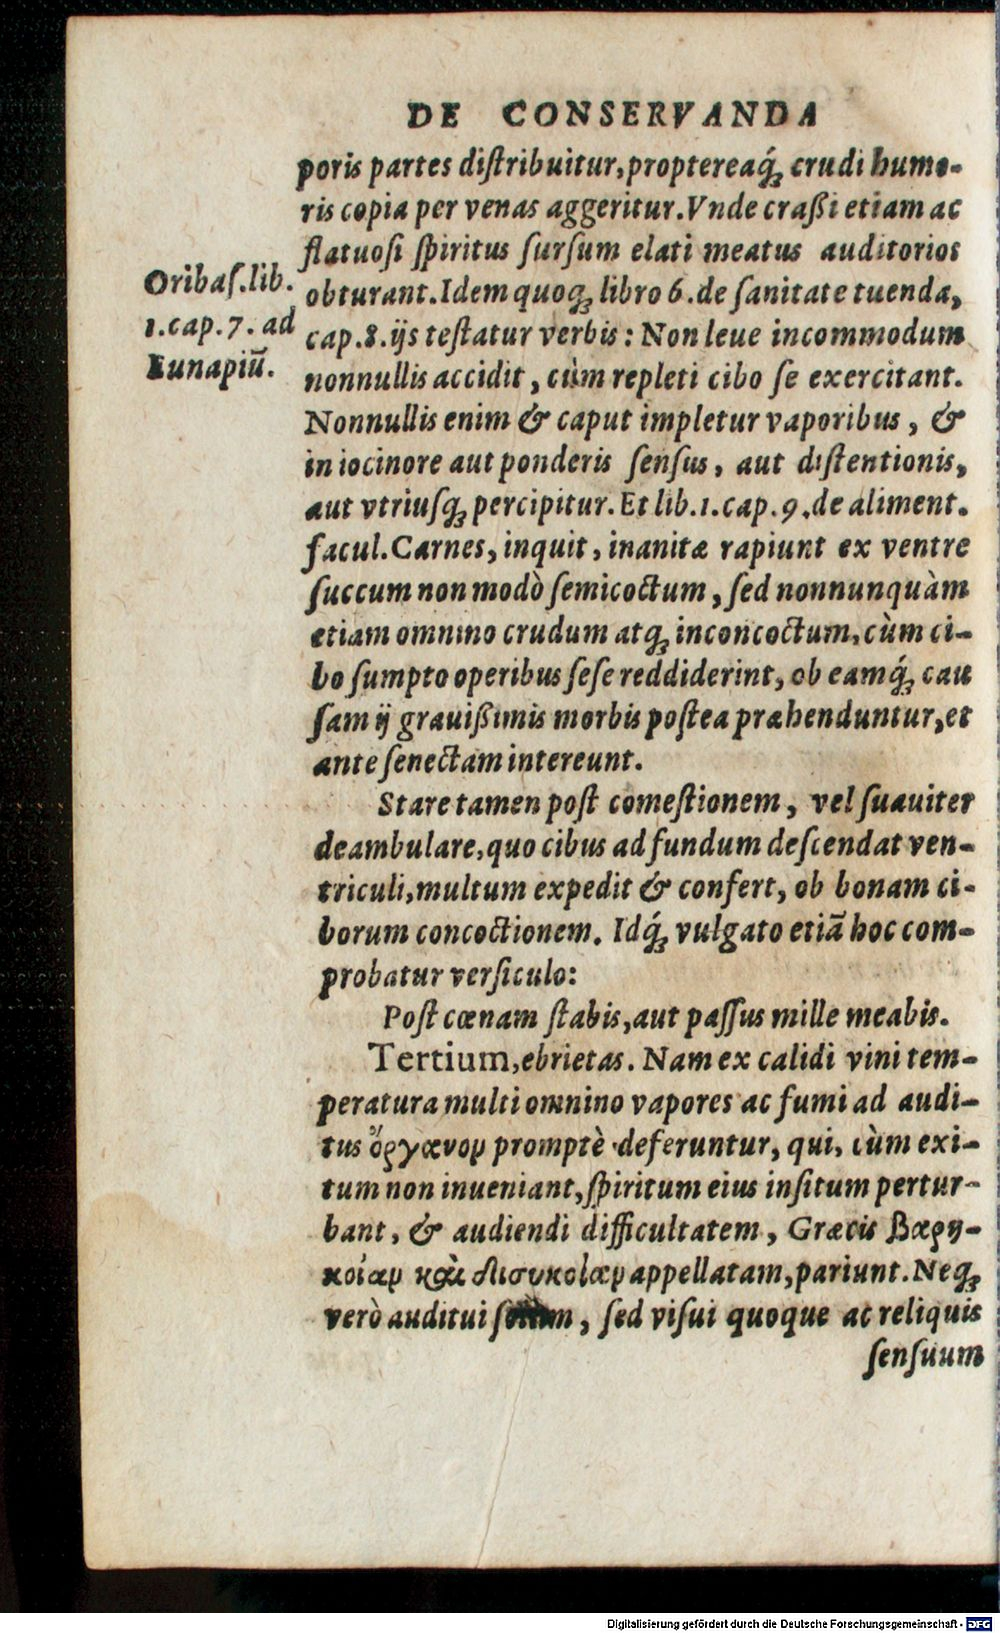 DE CONSERVANDA
poris partes diſtribuitur, proptereaq́ꝫ crudi humo-
ris copia per venas aggeritur. Vnde craßi etiam ac
flatuoſi ſpiritus ſurſum elati meatus auditorios
obturant. Idem quoqꝫ libro 6. de ſanitate tuenda,
cap. 8. ijs teſtatur verbis: Non leue incommodum
nonnullis accidit, cùm repleti cibo ſe exercitant.
Nonnullis enim & caput impletur vaporibus, &
in iocinore aut ponderis ſenſus, aut diſtentionis,
aut vtriuſqꝫ percipitur. Et lib. 1. cap. 9. de aliment.
facul. Carnes, inquit, inanitæ rapiunt ex ventre
ſuccum non modò ſemicoctum, ſed nonnunquàm
etiam omnino crudum atqꝫ inconcoctum, cùm ci-
bo ſumpto operibus ſeſe reddiderint, ob eamq́ꝫ cau
ſam ij grauißimis morbis poſtea præhenduntur, et
ante ſenectam intereunt.
Oribaſ. lib.
1. cap. 7. ad
Eunapiũ.
Stare tamen poſt comeſtionem, vel ſuauiter
deambulare, quo cibus ad fundum deſcendat ven-
triculi, multum expedit & confert, ob bonam ci-
borum concoctionem. Idq́ꝫ vulgato etiã hoc com-
probatur verſiculo:
Poſt cœnam ſtabis, aut paſſus mille meabis.
Tertium, ebrietas. Nam ex calidi vini tem-
peratura multi omnino vapores ac fumi ad audi-
tus ὄργανον promptè deferuntur, qui, cùm exi-
tum non inueniant, ſpiritum eius inſitum pertur-
bant, & audiendi difficultatem, Græcis βαρυ-
κοίαν καὶ δυσυκοίαν appellatam, pariunt. Neqꝫ
verò auditui, ſed viſui quoque ac reliquis
ſenſuum
Digitalisierung gefördert durch die Deutsche Forschungsgemeinschaft - DFG